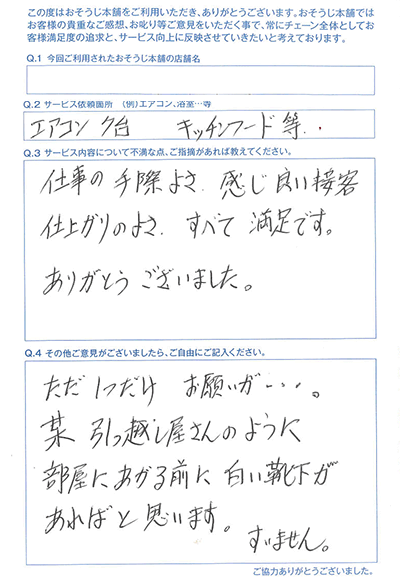 この度はおそうじ本舗をご利用いただき、ありがとうございます。おそうじ本舗では
お客様の貴重なご感想、お叱り等ご意見をいただく事で、常にチェーン全体としてお
客様満足度の追求と、サービス向上に反映させていきたいと考えております。
Q.1 今回ご利用されたおそうじ本舗の店舗名
Q.2 サービス依頼箇所 (例)エアコン、浴室…等
エアコン 7台 キッチンフード 等.
Q.3 サービス内容について不満な点、ご指摘があれば教えてください。
仕事の手際よさ. 感じ良い接客
仕上がりのよさ. すべて満足です。
ありがとうございました。
Q.4 その他ご意見がございましたら、ご自由にご記入ください。
ただ1つだけ お願いが・・・。
某 引っ越し屋さんのように
部屋にあがる前に 白い靴下が
あればと思います。
すいません。
ご協力ありがとうございました。